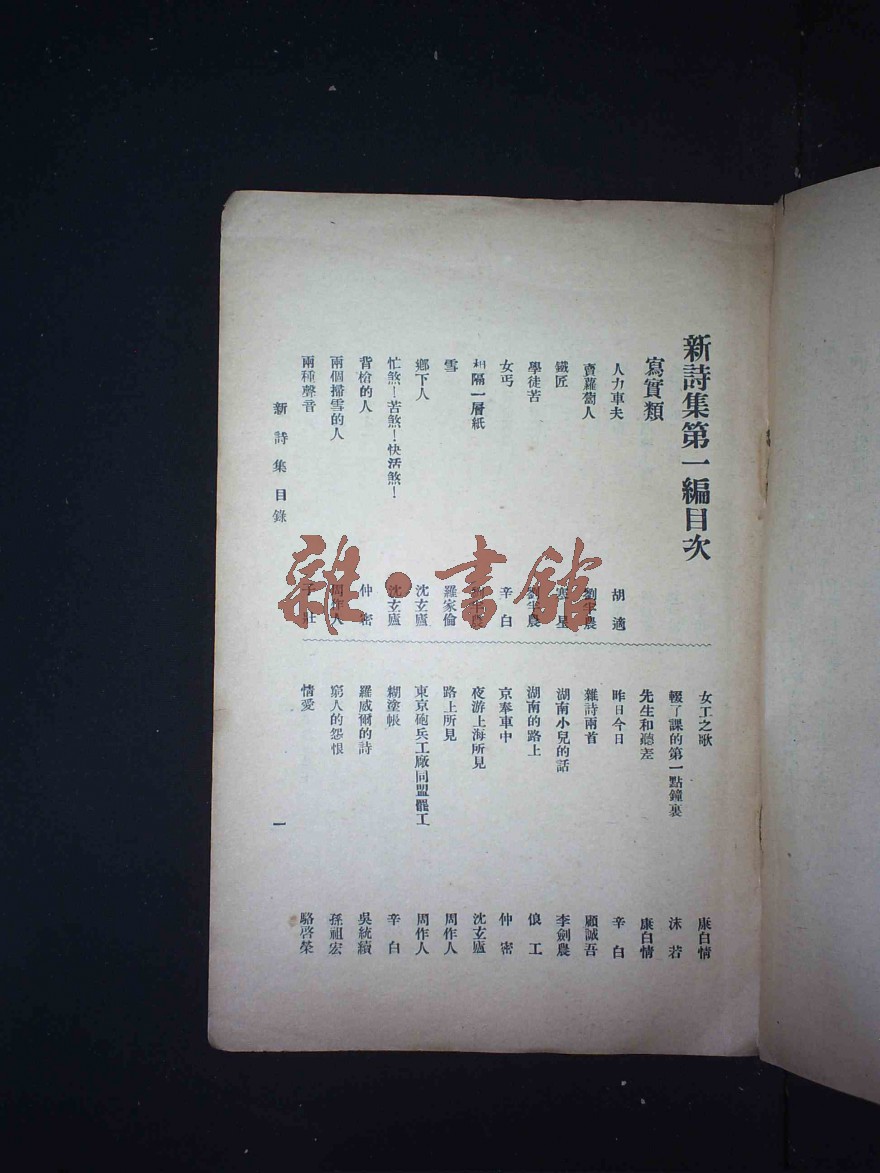 新詩集第一編目次
寫實類
人力車夫 胡適
賣蘿蔔人 劉半農
鐵匠 寒星
學徒苦 劉半農
女丐 辛白
相隔一層紙 劉半農
雪 羅家倫
鄉下人 沈玄廬
忙煞！苦煞！快活煞！ 沈玄廬
背槍的人 仲密
兩個掃雪的人 周作人
兩種聲音 子壯
女工之歌 康白情
輟了課的第一點鐘裏 沫若
先生和聽差 康白情
昨日今日 辛白
雜詩兩首 顧誠吾
湖南小兒的話 李劍農
湖南的路上 俍工
京奉車中 仲密
夜游上海所見 沈玄廬
路上所見 周作人
東京砲兵工廠同盟罷工 周作人
糊塗帳 辛白
羅威爾的詩 吳統續
窮人的怨恨 孫祖宏
情愛 駱啓榮
新詩集目錄
一
雜·書館